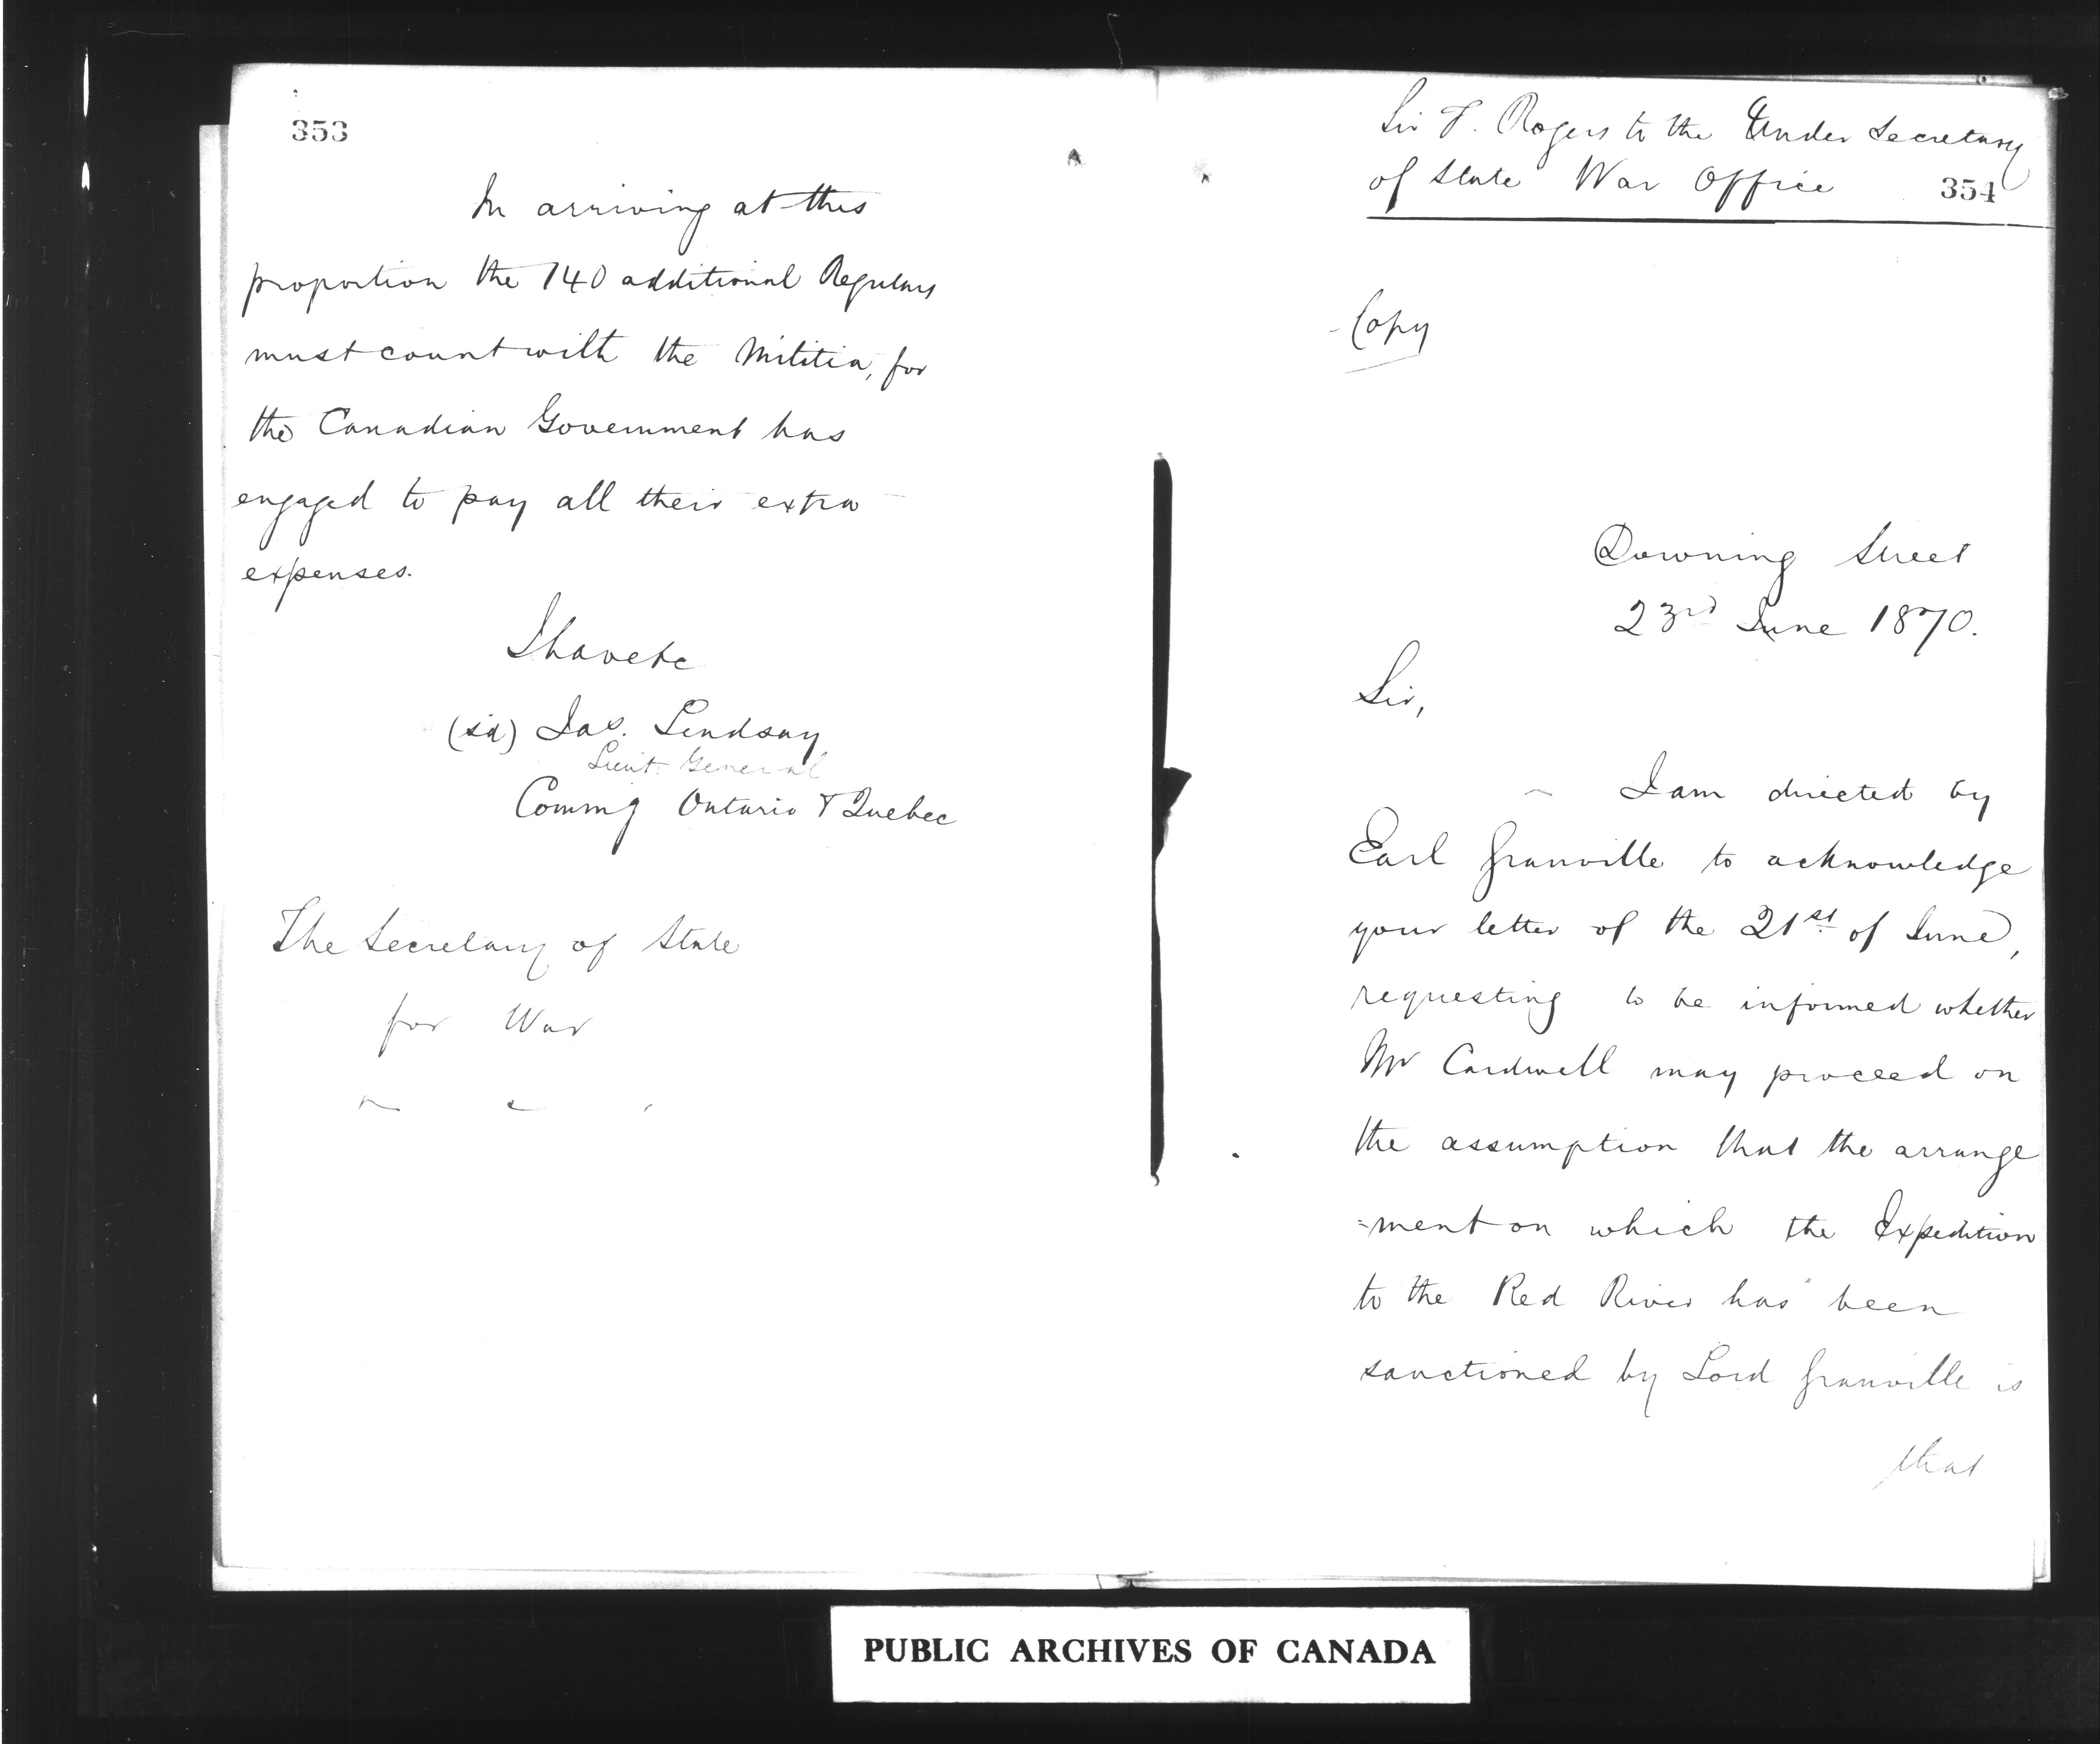 353
In arriving at this
proportion the 140 additional Regulars
must count with the Militia, for
the Canadian Government has
engaged to pay all their extra
expenses.
I have &c
(sd) Jas. Lindsay
Lieut. General
Commg Ontario & Quebec
The Secretary of State
for War
Sir F. Rogers to the Under Secretary
of State War Office 354
Copy
Downing Street
23rd June 1870.
Sir,
I am directed by
Earl Granville to acknowledge
your letter of the 21st of June,
requesting to be informed whether
Mr Cardwell may proceed on
the assumption that the arrange
=ment on which the Expedition
to the Red River has been
sanctioned by Lord Granville is
that
PUBLIC ARCHIVES OF CANADA